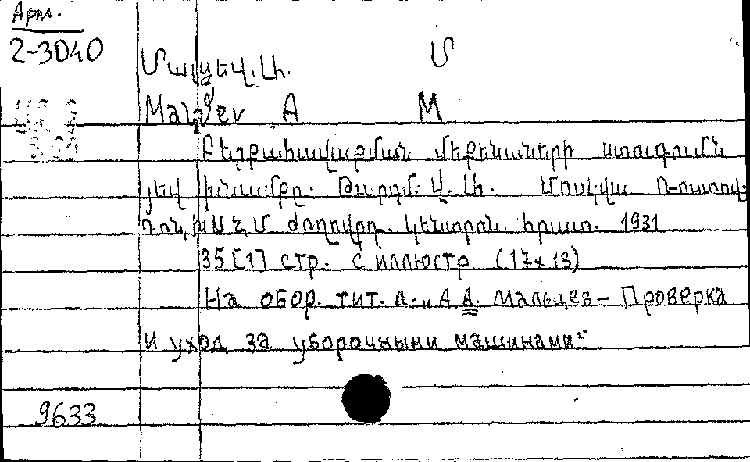 Арм.
2-3040
Մալցեվ. Ա. Մ
Malcev A M
Բերքահավաքման մեքենաների ստուգումն
յեվ խնամքը. Թարգմ. Մոսկվա Ռ-ոստով-
ԽՍՀՄ ժողովրդ. կենտրոն հրատ. 1931
35 [1] стр. с иллюстр (17×13)
На обор. тит. л. „А А. Мальцев – Проверка
и уход за уборочными машинами"
9633